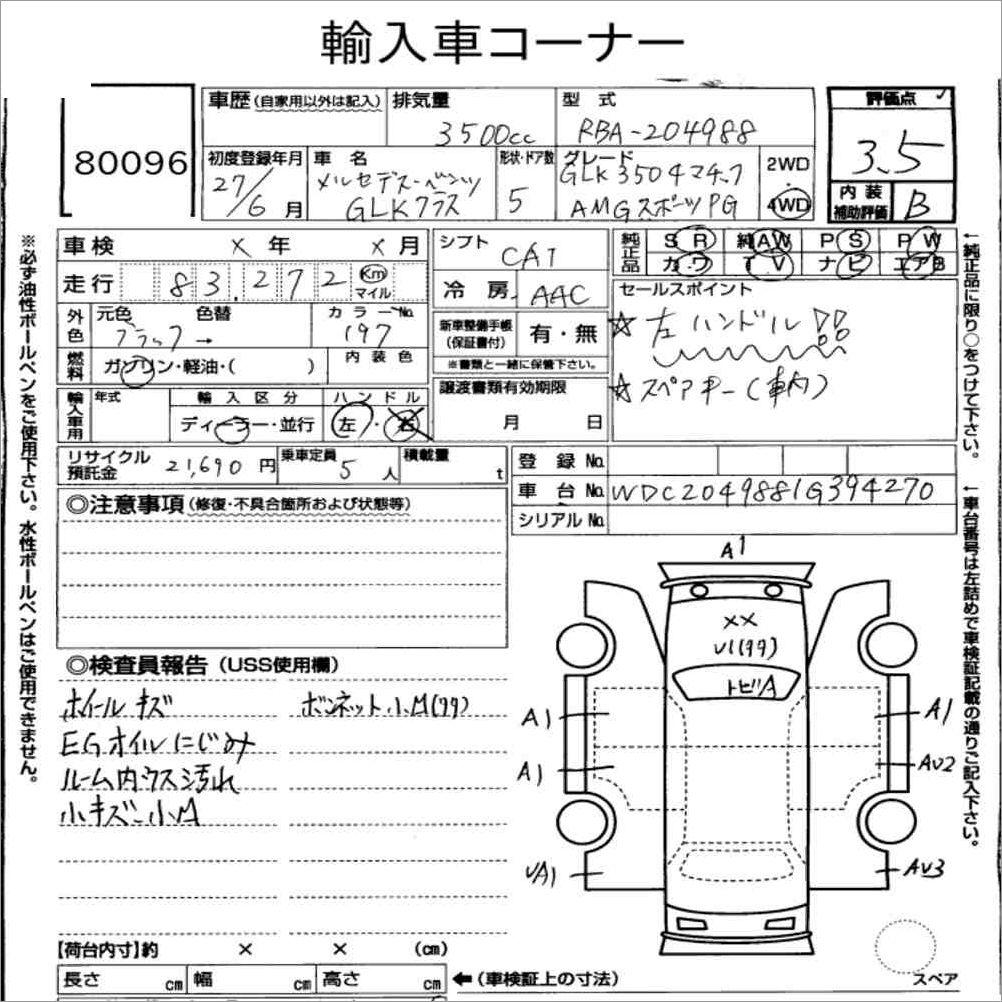 輸入車コーナー
80096
車歴(自家用以外は記入)
排気量
3500cc
型式
RBA-204988
評価点
3.5
初度登録年月
27/6月
車名
メルセデス-ベンツ
GLKクラス
形状・ドア数
5
グレード
GLK350 4マチック
AMGスポーツPG
2WD
・
4WD
内装
補助評価
B
車検 X年 X月
シフト
CAT
純正品
SR 純AW PS PW
カワ TV ナビ エアB
走行 83,272 Km
マイル
冷房 AAC
セールスポイント
☆左ハンドル
☆スペアキー(車内)
外色
元色 色替
ブラック→
カラーNo.
197
新車整備手帳
(保証書付)
有・無
※書類と一緒に保管下さい。
燃料
ガソリン・軽油・( )
内装色
譲渡書類有効期限
月 日
輸入車用
年式
輸入区分
ディーラー・並行
ハンドル
左・右
リサイクル
預託金
21,690円
乗車定員
5人
積載量
t
登録No.
車台No. WDC2049881G394270
シリアルNo.
◎注意事項(修復・不具合箇所および状態等)
◎検査員報告(USS使用欄)
ホイールキズ
ボンネット小M(タタ)
EGオイルにじみ
ルーム内ウス汚れ
小キズ-小M
A1
XX
U1(タタ)
トビA
A1
A1
A1
AU2
UA1
AU3
【荷台内寸】約 × × (cm)
長さ cm 幅 cm 高さ cm
←(車検証上の寸法)
スペア
※必ず油性ボールペンをご使用下さい。水性ボールペンはご使用できません。
←純正品に限り○をつけて下さい。
←車台番号は左詰めで車検証記載の通りご記入下さい。